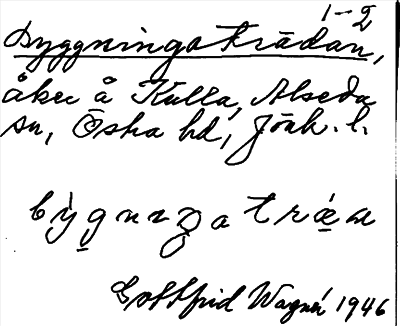 1-2
Byggningaträdan,
åker å Kulla, Alseda
sn, Östra hd, Jönk. l.
bỳgnıŋatræ̀n
Gottfrid Wagnér 1946